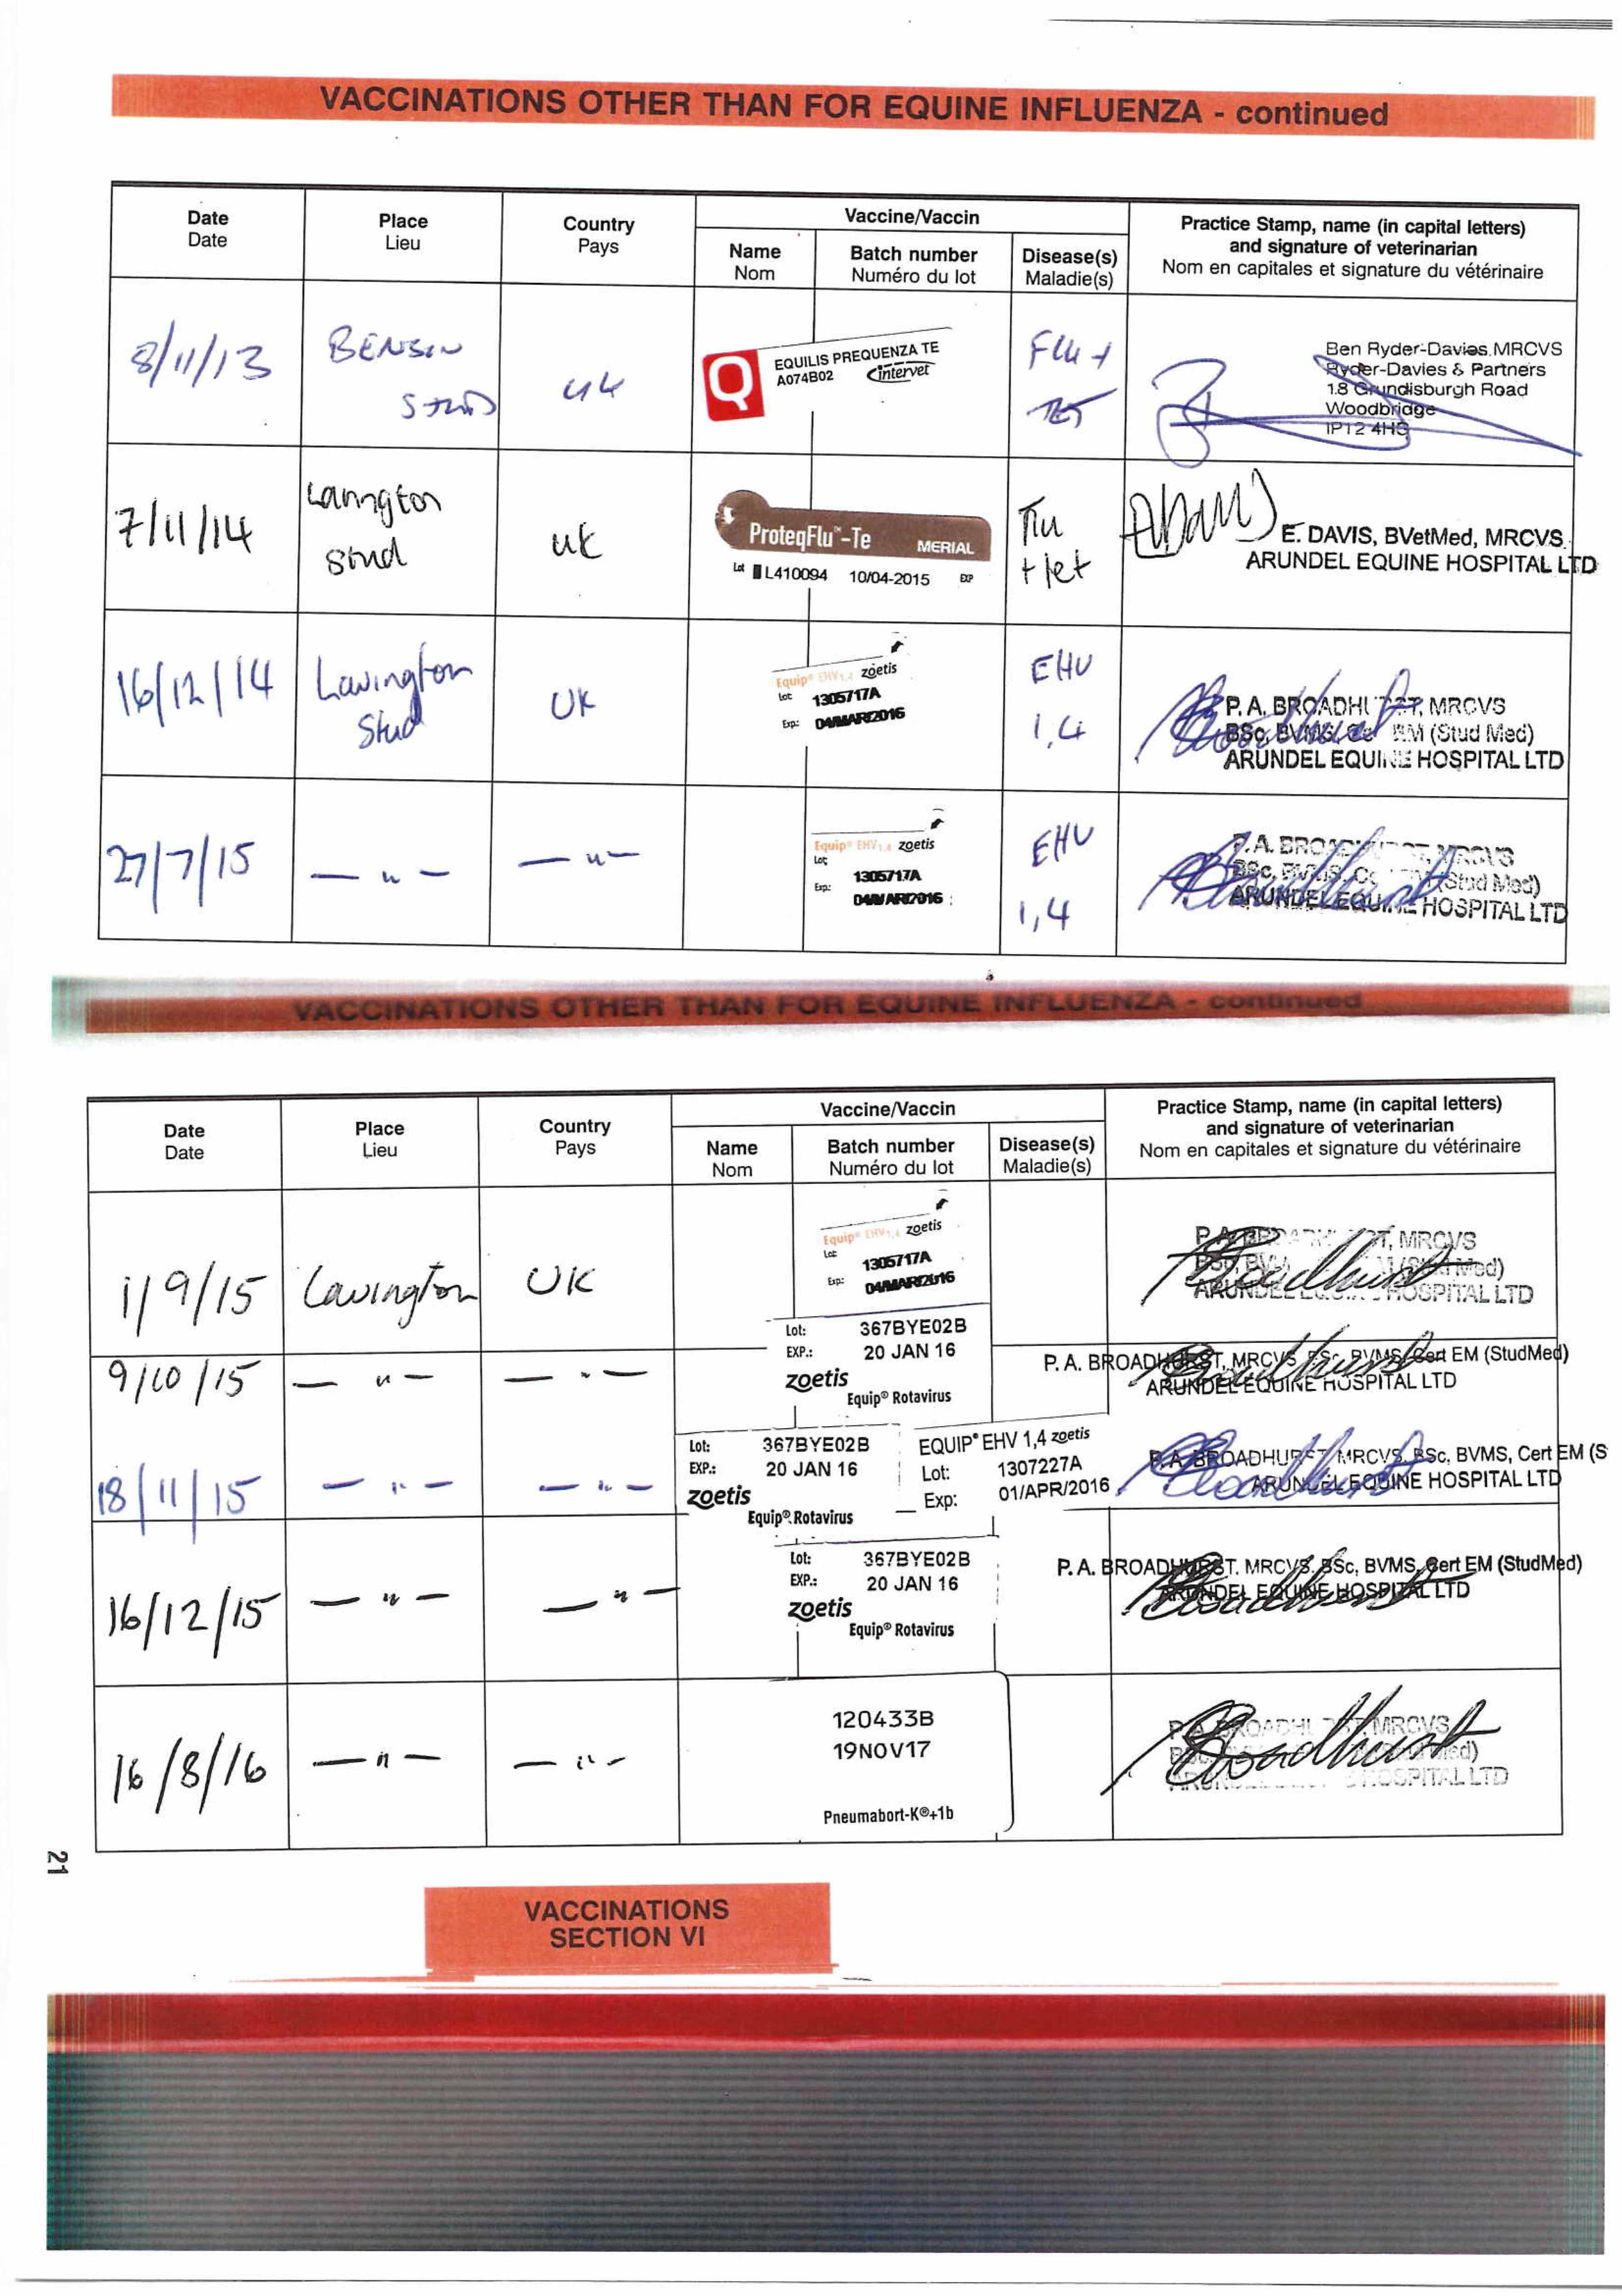 VACCINATIONS OTHER THAN FOR EQUINE INFLUENZA - continued
Date
Date
Place
Lieu
Country
Pays
Vaccine/Vaccin
Name
Nom
Batch number
Numéro du lot
Disease(s)
Maladie(s)
Practice Stamp, name (in capital letters)
and signature of veterinarian
Nom en capitales et signature du vétérinaire
8/11/13
BENSON
STUD
UK
Q
EQUILIS PREQUENZA TE
A074B02 intervet
Flu +
TET
Ben Ryder-Davies MRCVS
Ryder-Davies & Partners
18 Grundisburgh Road
Woodbridge
IP12 4HG
7/11/14
Lavington
Stud
UK
ProteqFlu™-Te MERIAL
Lot L410094 10/04-2015 EXP
Flu
+ tet
E. DAVIS, BVetMed, MRCVS
ARUNDEL EQUINE HOSPITAL LTD
16/12/14
Lavington
Stud
UK
Equip® EHV1,4 zoetis
Lot: 1305717A
Exp: 04/MAR/2016
EHV
1,4
P. A. BROADHURST, MRCVS
BSc, BVMS, Cert EM (Stud Med)
ARUNDEL EQUINE HOSPITAL LTD
27/7/15
— " —
— " —
Equip® EHV1,4 zoetis
Lot: 1305717A
Exp: 04/MAR/2016
EHV
1,4
P. A. BROADHURST, MRCVS
BSc, BVMS, Cert EM (Stud Med)
ARUNDEL EQUINE HOSPITAL LTD
VACCINATIONS OTHER THAN FOR EQUINE INFLUENZA - continued
Date
Date
Place
Lieu
Country
Pays
Vaccine/Vaccin
Name
Nom
Batch number
Numéro du lot
Disease(s)
Maladie(s)
Practice Stamp, name (in capital letters)
and signature of veterinarian
Nom en capitales et signature du vétérinaire
1/9/15
Lavington
UK
Equip® EHV1,4 zoetis
Lot: 1305717A
Exp: 04/MAR/2016
P. A. BROADHURST, MRCVS
BSc, BVMS, (Stud Med)
ARUNDEL EQUINE HOSPITAL LTD
9/10/15
— " —
— " —
Lot: 367BYE02B
EXP.: 20 JAN 16
zoetis
Equip® Rotavirus
P. A. BROADHURST, MRCVS BSc, BVMS, Cert EM (StudMed)
ARUNDEL EQUINE HOSPITAL LTD
18/11/15
— " —
— " —
Lot: 367BYE02B
EXP.: 20 JAN 16
zoetis
Equip® Rotavirus
EQUIP® EHV 1,4 zoetis
Lot: 1307227A
Exp: 01/APR/2016
P. A. BROADHURST, MRCVS, BSc, BVMS, Cert EM (S
ARUNDEL EQUINE HOSPITAL LTD
16/12/15
— " —
— " —
Lot: 367BYE02B
EXP.: 20 JAN 16
zoetis
Equip® Rotavirus
P. A. BROADHURST. MRCVS. BSc, BVMS, Cert EM (StudMed)
ARUNDEL EQUINE HOSPITAL LTD
16/8/16
— " —
— " —
120433B
19NOV17
Pneumabort-K®+1b
P. A. BROADHURST, MRCVS
ARUNDEL EQUINE HOSPITAL LTD
21
VACCINATIONS
SECTION VI